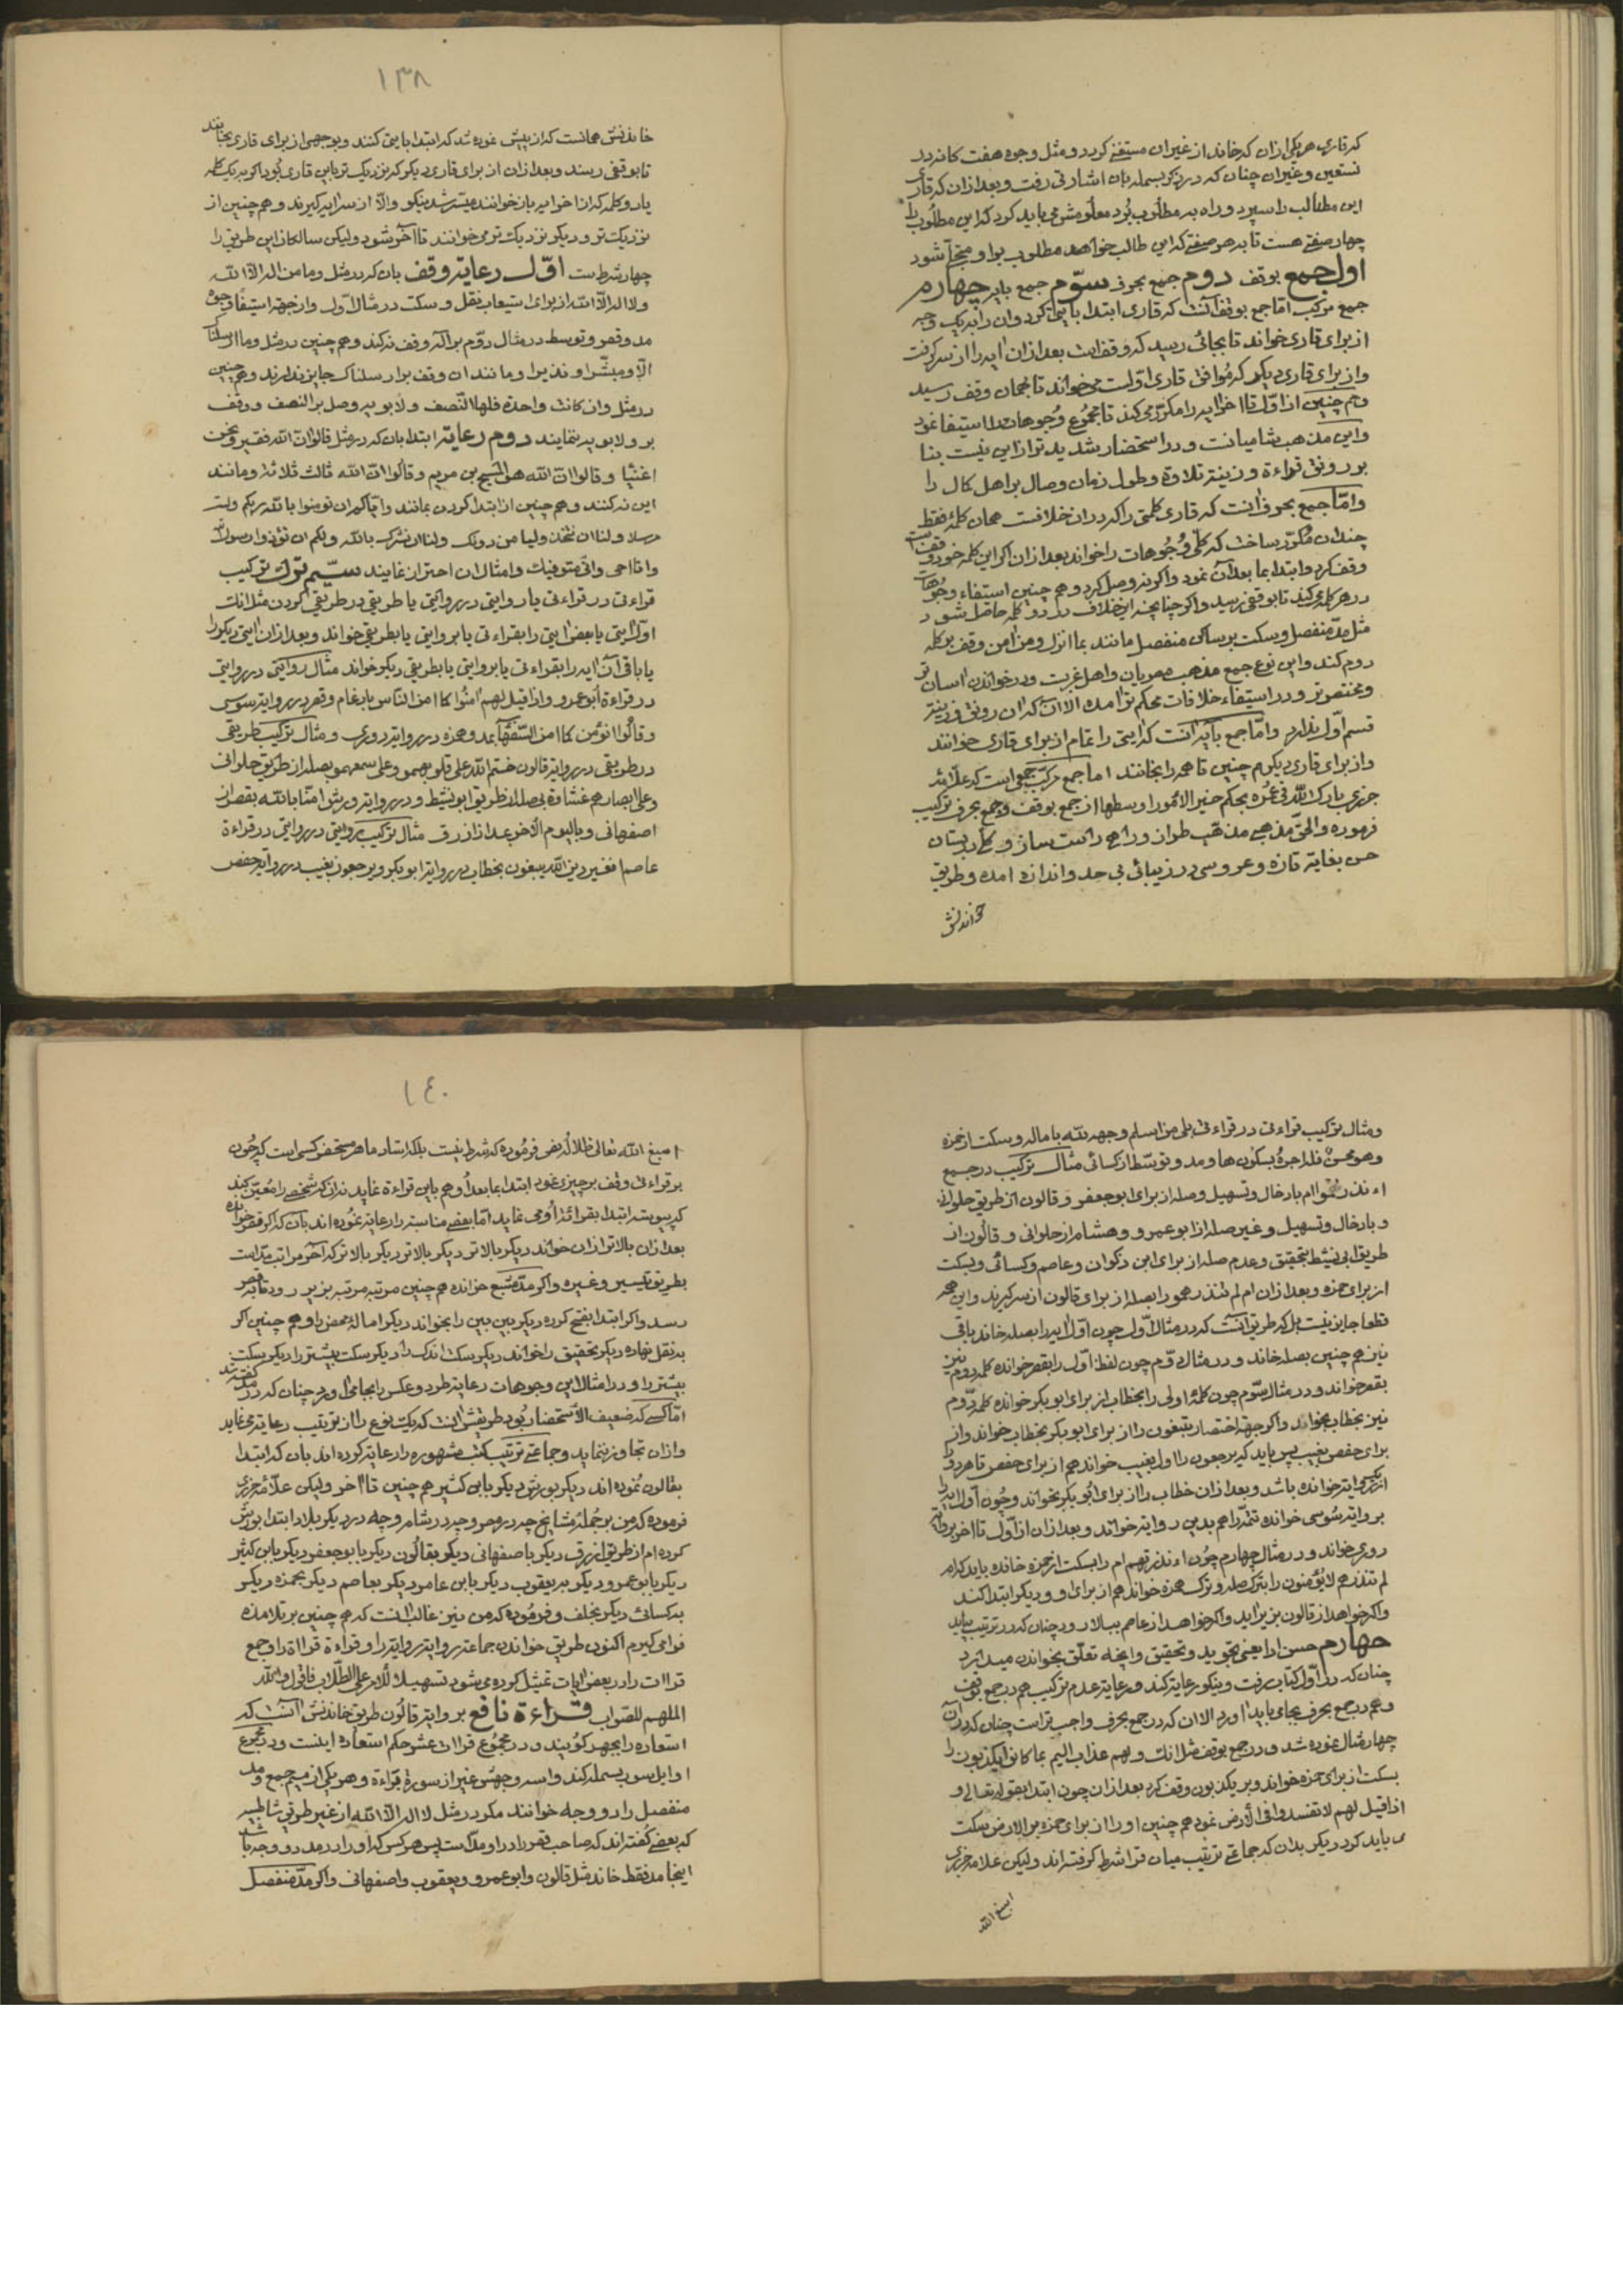 که قاری هر یکی از آن که خاند از غیر آن مستغنی کردد و مثل وجوه هفت کانه در
نستعین و غیر آن چنان که در ذکر بسمله بان اشارتی رفت و بعد از آن که قاری
این مطالب را سپرد و راه به مطلوب بُرد معلوم می باید کرد که این مطلوب را
چهار صفتی هست تا به هر صفتی که این طالب خواهد مطلوب بر او متجلّی شود
اول جمع بوقف دوم جمع بحرف سوّم جمع بآیه چهارم
جمع مرکب امّا جمع بوقف آنست که قاری ابتدا بآیتی کرد و آن را به یک وجه
از برای قاری خواند تا بجائی رسید که وقف است بعد از آن آیه را از سر کرفت
و از برای قاری دیکر که موافق قاری اوّلست می خواند تا بهمان وقف رسید
و هم چنین از اوّل تا آخر آیه را مکرّر می کند تا مجموع وجوهات را استیفا نمود
و این مذهب شامیانست و در استحضار شدیدتر از این نیست بنا
بر رونق قراءة و زینة تلاوة و طول زمان وصال بر اهل کمال را
و امّا جمع بحرف آنست که قاری کلمتی را که در آن خلافست همان کلمه فقط
چندان مکرّر ساخت که کلّ وجوهات را خواند بعد از آن اکر این کلمه خود وقف است
وقف کرد و ابتدا بما بعد آن نمود و اکر نه وصل کرد و هم چنین استیفاء وجوهات
در هر کلمه می کند تا بوقفی رسید و اکر چنانچه این خلاف در دو کلمه حاصل شود
مثل مدّ منفصل و سکت بر ساکن منفصل مانند بما انزل و من آمن وقف بر کلمه
دوم کند و این نوع جمع مذهب مصریان و اهل غربت و در خواندن آسان تر
و مختصرتر و در استیفاء خلافات محکم تر آمده الا آن که آن رونق و زینة
قسم اوّل ندارد و امّا جمع بآیه آنست که آیتی را تمام از برای قاری خوانند
و از برای قاری دیکر هم چنین تا همه را بخانند اما جمع مرکب جمعی است که علّامه
جزری بارک اللّه فی عمره بحکم خیر الأمور اوسطها از جمع بوقف و جمع بحرف ترکیب
فرموده و الحقّ مذهبی مذهّب طراز و راهی راست ساز و کلی در بستان
حسن بغایة تازه و عروسی در زیبائی بی حد و اندازه آمده و طریق
خواندنش
۱۳۸
خاندنش همانست که از پیش نموده شد که ابتدا بآیتی کنند و بوجهی از برای قاری بخوانند
تا بوقفی رسند و بعد از آن از برای قاری دیکر که نزدیک تر باین قاری بُود اکر به یک کلمه
یا دو کلمه که از آخر آیه باز خوانند میسّر شد نیکو و الّا از سر آیه کیرند و هم چنین از
نزدیک تر و دیکر نزدیک تر می خوانند تا آخر شود و لیکن سالکان این طریق را
چهار شرطست اوّل رعایة وقف بان که در مثل و ما من اله الّا اللّه
و لا اله الّا اللّه از برای استیعاب نقل و سکت در مثال اوّل و از جهة استیفاء وجوه
مد و قصر و توسط در مثال دوّم بر اله وقف نکند و هم چنین در مثل و ما ارسلناک
الّا مبشّرا و نذیرا و مانند آن وقف بر ارسلناک جایز ندارند و هم چنین
در مثل و ان کانت واحدة فلها النّصف و لابویه وصل بر النصف و وقف
بر و لابویه ننمایند دوم رعایة ابتدا بان که در مثل قالوا انّ اللّه فقیر و نحن
اغنیا و قالوا انّ اللّه هو المسیح بن مریم و قالوا انّ اللّه ثالث ثلاثة و مانند
این نه کنند و هم چنین از ابتدا کردن بمانند و ایّاکم ان تومنوا بالله ربکم و لست
مرسلا و لنا ان نتخذ ولیا من دونک و لنا ان نشرک باللّه و لکم ان تؤذوا رسول
و انا احی و انّی متوفّیک و امثال آن احتراز نمایند سیّم ترک ترکیب
قراءتی در قراءتی یا روایتی در روایتی یا طریقی در طریقی کردن مثل آنک
اوّل آیتی یا بعض آیتی را بقراءتی یا بروایتی یا بطریقی خواند و بعد از آن آیتی دیکر را
یا باقی آن آیه را بقراءتی یا بروایتی یا بطریقی دیکر خواند مثال روایتی در روایتی
در قراءة أبو عمرو و اذا قیل لهم آمنوا کما آمن النّاس بادغام و قصر در روایة سوسی
و قالُوا انؤمن کما آمن السّفهآ بمد و همزه در روایة دوری و مثال ترکیب طریقی
در طریقی در روایة قالون ختم اللّه علی قلوبهم و علی سمعهم بصله از طریق حلوانی
و علی ابصارهم غشاوة بی صله از طریق ابو نشیط و در روایة ورش آمنّا باللّه بقصر از
اصفهانی و بالیوم الآخر بمد از ازرق مثال ترکیب روایتی در روایتی در قراءة
عاصم افغیر دین اللّه یبغون بخطاب در روایة ابو بکر و یرجعون بغیب در روایة حفص
و مثال ترکیب قراءتی در قراءتی بلی من اسلم وجهه للّه باماله و سکت از حمزه
و هو محسن فله اجره بسکون ها و مد و توسّط از کسائی مثال ترکیب در جمیع
أءنذرتهم ام بادخال و تسهیل و صله از برای ابو جعفر و قالون از طریق حلوانی
و بادخال و تسهیل و غیر صله از ابو عمرو و هشام از حلوانی و قالون از
طریق ابی نشیط بتحقیق و عدم صله از برای ابن ذکوان و عاصم و کسائی و بسکت
از برای حمزه و بعد از آن ام لم تنذرهم را بصله از برای قالون از سر کیرند و این همه
قطعا جایز نیست بل که طریق آنست که در مثال اوّل چون اوّل آیه را بصله خاند باقی
نیز هم چنین بصله خاند و در مثال دوّم چون لفظ اوّل را بقصر خوانده کلمه دوم نیز
بقصر خواند و در مثال سوّم چون کلمه اولی را بخطاب از برای ابو بکر خوانده کلمه دوّم
نیز بخطاب بخواند و اکر جهة اختصار یبغون را از برای ابو بکر بخطاب خواند و از
برای حفص بغیب پس باید که یرجعون را اول بغیب خواند هم از برای حفص تا هر دو را
از یک روایة خوانده باشد و بعد از آن خطاب را از برای ابو بکر بخواند و چون اول آیه را
بروایة سُوسی خوانده تتمّه را هم بدین روایة خواند و بعد از آن از اوّل تا آخر بروایة
دوری خواند و در مثال چهارم چون ءانذرتهم ام را بسکت از حمزه خانده باید که ام
لم تنذرهم لا یؤمنون را بترک صله و ترک همزه خواند هم از برای او و دیکر ابتدا کند
و اکر خواهد از قالون بزیر آید و اکر خواهد از عاصم ببالا رود چنان که در ترتیب بیاید
چهارم حسن ادا یعنی تجوید و تحقیق و آنچه تعلّق بخواندن میدارد
چنان که در اوّل کتاب رفت و نیکو رعایة کند و رعایة عدم ترکیب هم در جمع بوقف
و هم در جمع بحرف بجای باید آورد الا آن که در جمع بحرف واجب تر است چنان که در آن
چهار مثال نموده شد و در جمع بوقف مثل آنک و لهم عذاب الیم بما کانوا یکذبون را
بسکت از برای حمزه خواند و بر یکذبون وقف کرد بعد از آن چون ابتدا بقوله تعالی و
اذا قیل لهم لا تفسدوا فی الأرض نمود هم چنین او را از برای حمزه بر الارض سکت
می باید کرد دیکر بدان که جماعتی ترتیب میان قرا شرط کرفته اند و لیکن علامه جزری
اسبغ اللّه
۱٤۰
اسبغ اللّه تعالی ظلاله می فرموده که شرط نیست بلکه استاد ماهر مستحضر کسی است که چون
بر قراءتی وقف بر چیزی نمود ابتدا بما بعد او هم باین قراءة نماید نه آن که شخصی را معیّن کند
که پیوسته ابتدا بقرائة او می نماید امّا بعضی مناسبة را رعایة نمُوده اند بآن که اکر قصر خوانده
بعد از آن بالاتر از آن خواند دیکر بالاتر دیکر بالاتر دیکر بالاتر که آخر مراتب مدّ است
بطریق تیسیر و غیره و اکر مدّ مشبع خوانده هم چنین مرتبه مرتبه بزیر رود تا بقصر
رسد و اکر ابتدا بفتح کرده دیکر بین بین را بخواند دیکر امالهٔ محض را و هم چنین اکر
به نقل نهاده دیکر تحقیق را خواند دیکر سکت اندک را دیکر سکت بیشتر را دیکر سکت
بیشتر را و در امثال این وجوهات رعایة طرد و عکس را بجای آورد چنان که در مد کفته شد
امّا کسی که ضعیف الاستحضار بُود طریقش آنست که یک نوع را از ترتیب رعایة می نماید
و از آن تجاوز ننماید و جماعتی ترتیب کتب مشهوره را رعایة کرده اند بان که ابتدا
بقالون نمُوده اند دیکر بورش دیکر بابن کثیر هم چنین تا آخر و لیکن علّامه جزری
فرموده که من بر جملهٔ مشایخ چه در مصر و چه در شام و چه در دیکر بلاد ابتدا بورش
کرده ام از طریق ازرق دیکر باصفهانی دیکر بقالون دیکر بابو جعفر دیکر بابن کثیر
دیکر بابو عمرو دیکر بیعقوب دیکر بابن عامر دیکر بعاصم دیکر بحمزه دیکر
بکسائی دیکر بخلف و فرمُوده که من نیز غالب آنست که هم چنین بر تلامذه
فرا می کیرم اکنون طریق خواندن جماعة در روایة روایة را و قراءة قراءة را و جمع
قراآت را در بعضی آیات تمثیل کرده می شود تسهیلا للأمر علی الطلّاب فاقول و اللّه
الملهم للصّواب قراءة نافع بروایة قالُون طریق خاندنش آنست که
استعاذه را بجهر کویند و در مجمُوع قراات عشر حکم استعاذه اینست و در مجموع
اوایل سور بسمله کند و بسه وجهش غیر از سورة براءة و هر یکی از میم جمع و مد
منفصل را دو وجه خوانند مکر در مثل لا اله الّا اللّه از غیر طریق شاطبیه
که بعضی کفته اند که صاحب قصر را در او مدّ است پس هر کس که او را در مد دو وجه باشد
اینجا مد فقط خاند مثل قالون و ابو عمرو و یعقوب و اصفهانی و اکر مدّ منفصل